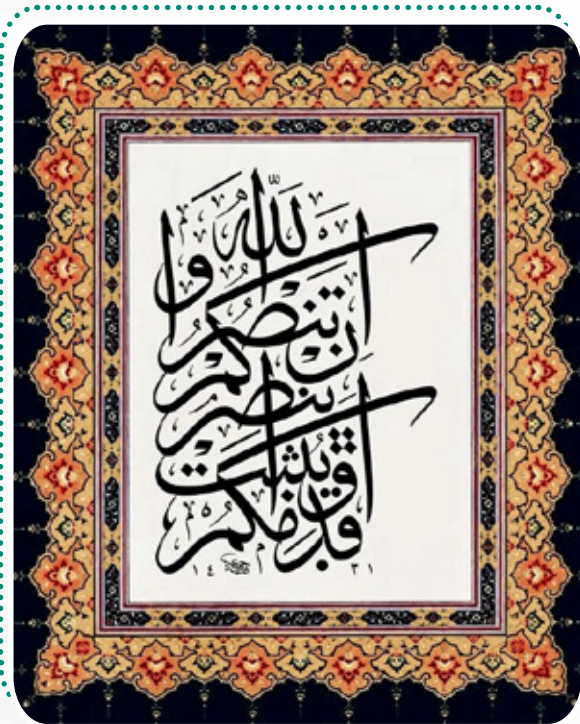 ان تنصروا الله ينصركم ويثبت اقدامكم
١٤٣١